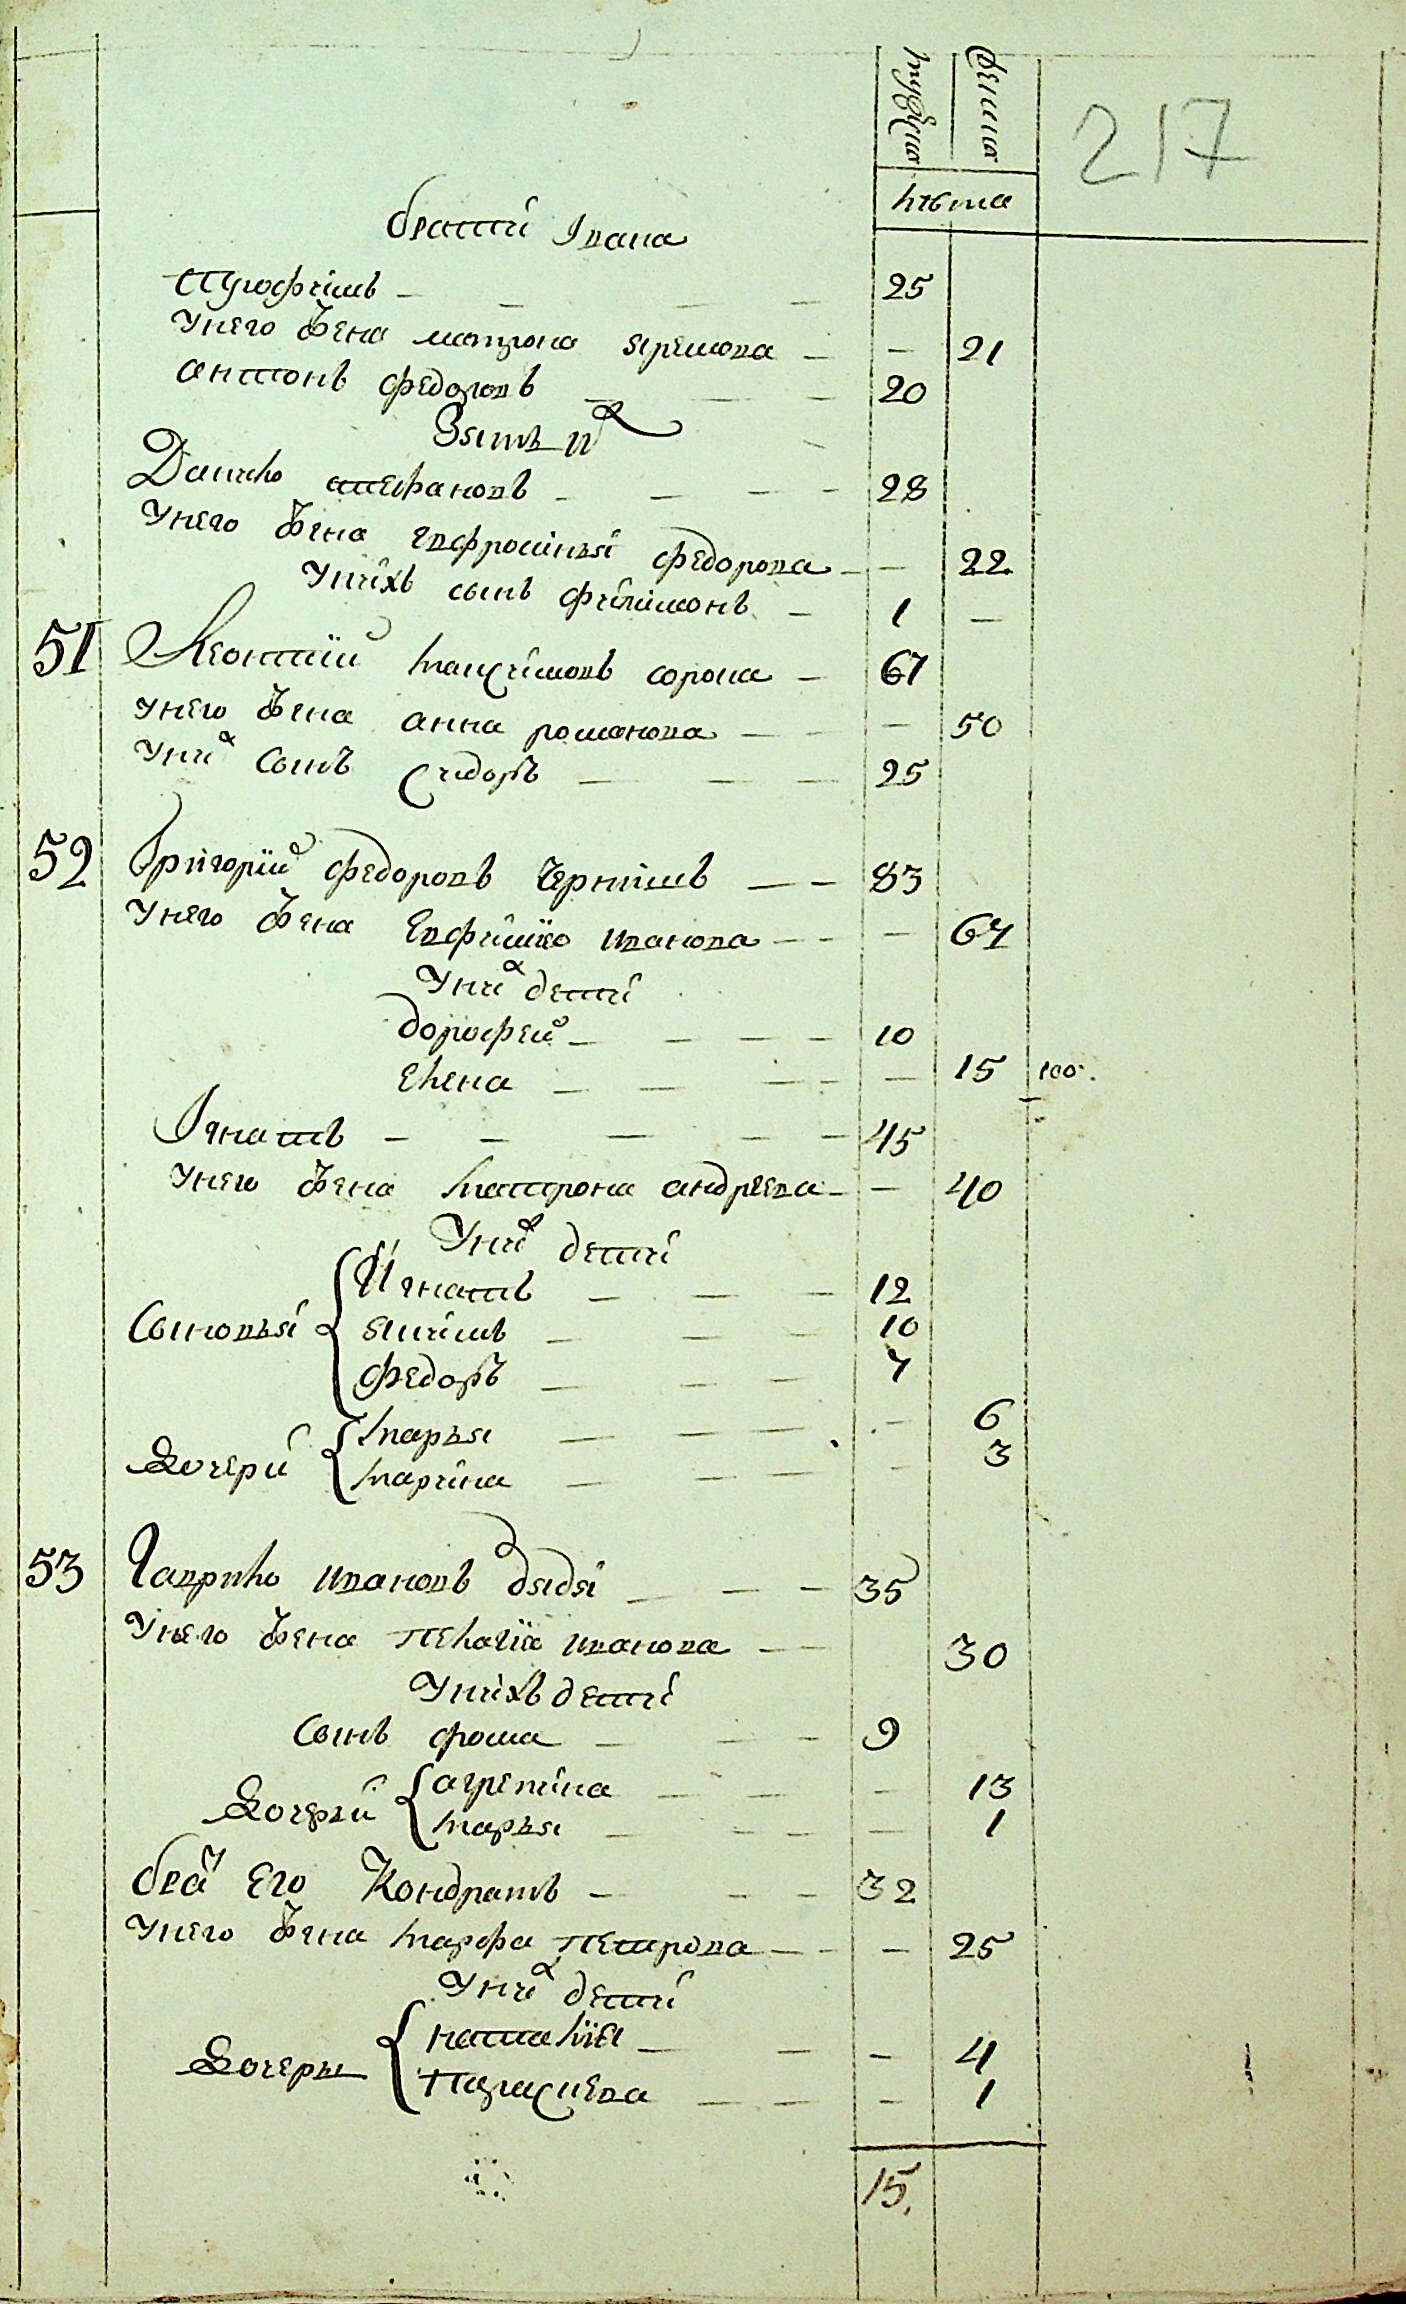 мужеска
женска
217
лѣта
братій Ивана
Трофимъ 25
Унего жена матрона яремова 21
антонъ федоровъ 20
Зять ихъ
Данило стефановъ 28
Унего жена евфросинья федорова 22
Унихъ сынъ филимонъ 1
51 Леонтій максимовъ сорока 67
унего жена анна романова 50
Уних сынъ Сидоръ 25
52 Григорій федоровъ чернишъ 83
Унего жена Евфимію иванова 67
Уних дети
дорофей 10
елена 15
Игнатъ 45
Унего жена матрона андреева 40
Уних дети
Сыновья Игнатъ 12
якимъ 10
федоръ 7
Дочери марья 6
марина 3
53 Гаврило ивановъ дядя 35
Унего жена пелагія иванова 30
Унихъ дети
Сынъ фома 9
Дочерьи агрепина 13
марья 1
братъ его Кондратъ 32
Унего жена марфа петрова 25
Уних дети
Дочеры наталія 4
параскева 1
15.